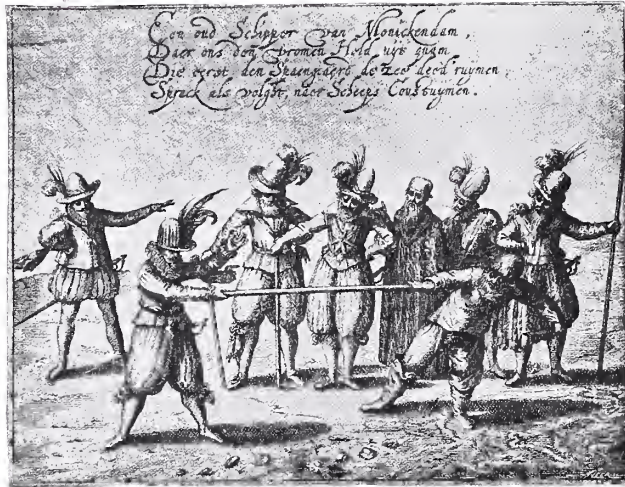 Een oud Schipper van Monickendam,
Daer ons den vromen Held uyt quam
Die eerst den Spaengiaerd de zee deed ruymen
Sprack als volght, naer Scheeps Coustuymen.